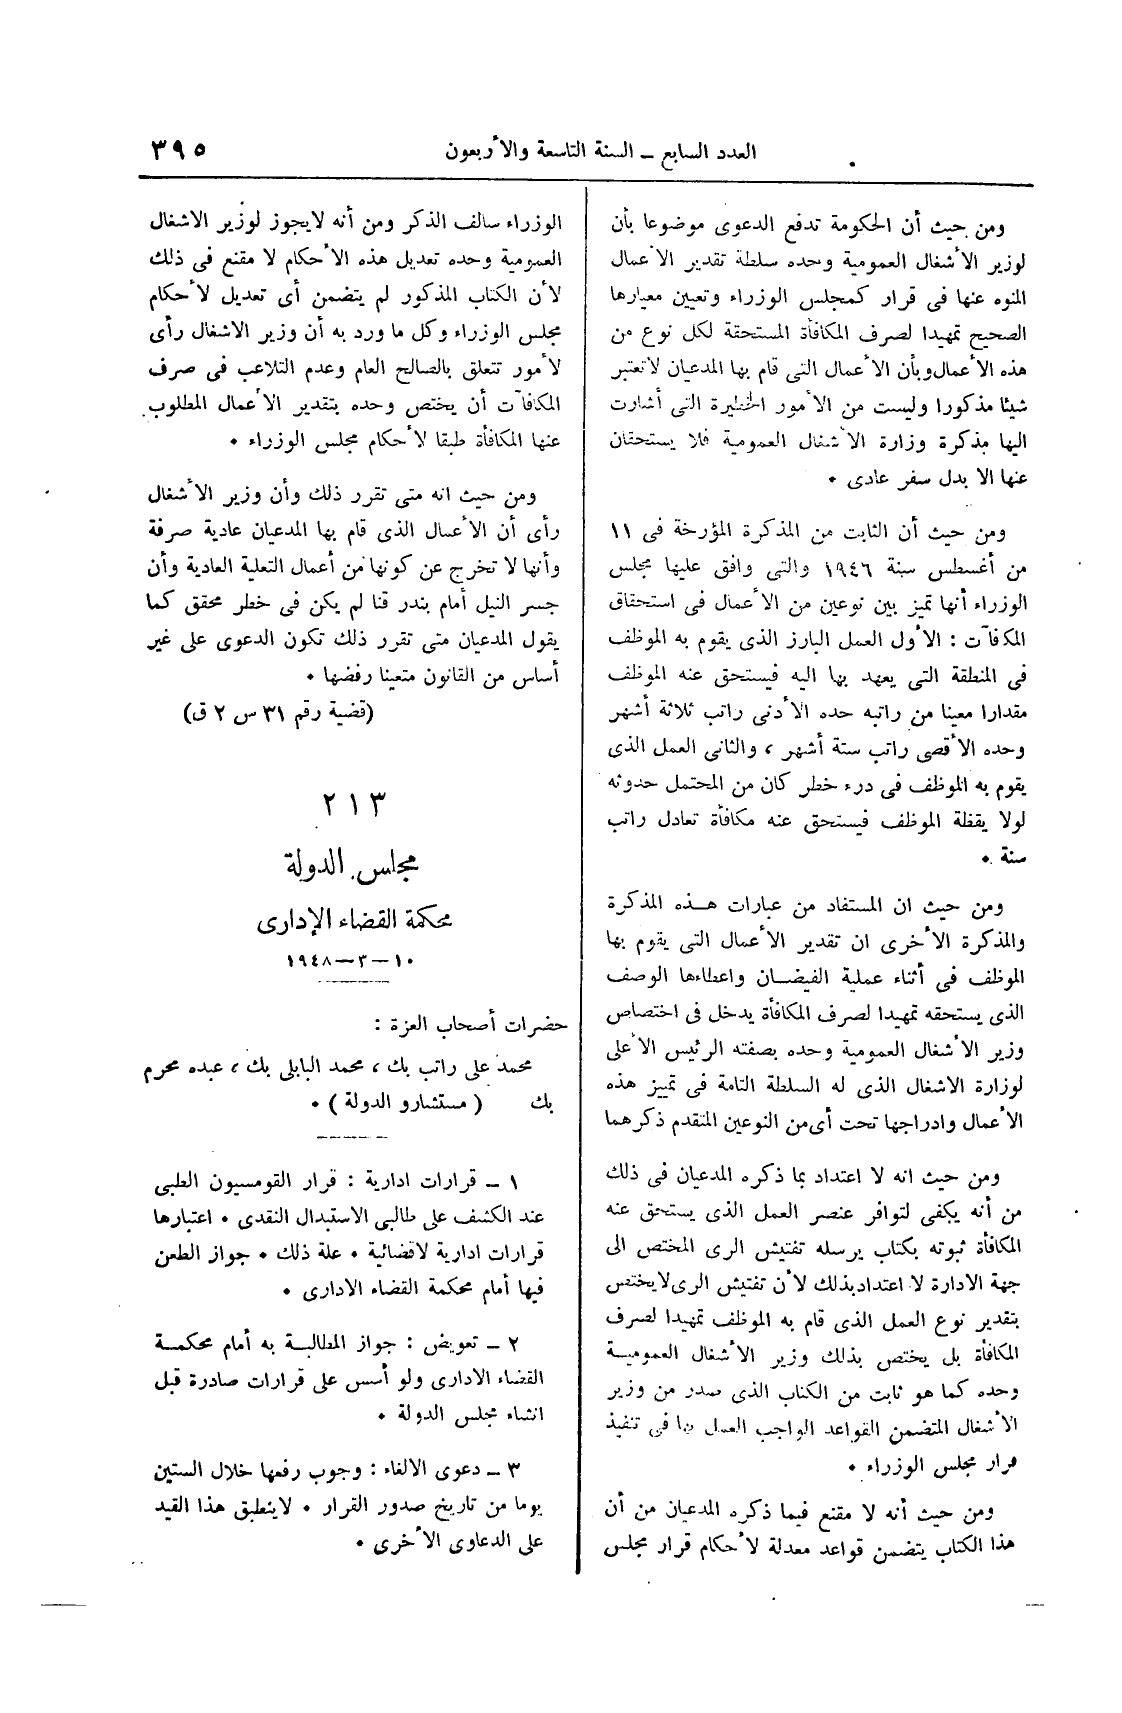 العدد السابع ــ السنة التاسعة والأربعون
٣٩٥
ومن حيث أن الحكومة تدفع الدعوى موضوعا بأن
لوزير الأشغال العمومية وحده سلطة تقدير الأعمال
المنوه عنها فى قرار كمجلس الوزراء وتعيين معيارها
الصحيح تمهيدا لصرف المكافأة المستحقة لكل نوع من
هذه الأعمال وبأن الأعمال التى قام بها المدعيان لاتعتبر
شيئا مذكورا وليست من الأمور الخطيرة التى أشارت
اليها مذكرة وزارة الأشغال العمومية فلا يستحقان
عنها الا بدل سفر عادى ٠
ومن حيث أن الثابت من المذكرة المؤرخة فى ١١
من أغسطس سنة ١٩٤٦ والتى وافق عليها مجلس
الوزراء أنها تميز بين نوعين من الأعمال فى استحقاق
المكافآت : الأول العمل البارز الذى يقوم به الموظف
فى المنطقة التى يعهد بها اليه فيستحق عنه الموظف
مقدارا معينا من راتبه حده الأدنى راتب ثلاثة أشهر
وحده الأقصى راتب ستة أشهر ، والثانى العمل الذى
يقوم به الموظف فى درء خطر كان من المحتمل حدوثه
لولا يقظة الموظف فيستحق عنه مكافأة تعادل راتب
سنة ٠
ومن حيث ان المستفاد من عبارات هذه المذكرة
والمذكرة الأخرى ان تقدير الأعمال التى يقوم بها
الموظف فى أثناء عملية الفيضان واعطاءها الوصف
الذى يستحقه تمهيدا لصرف المكافأة يدخل فى اختصاص
وزير الأشغال العمومية وحده بصفته الرئيس الأعلى
لوزارة الاشغال الذى له السلطة التامة فى تمييز هذه
الأعمال وادراجها تحت أى من النوعين المتقدم ذكرهما
ومن حيث انه لا اعتداد بما ذكره المدعيان فى ذلك
من أنه يكفى لتوافر عنصر العمل الذى يستحق عنه
المكافأة ثبوته بكتاب يرسله تفتيش الرى المختص الى
جهة الادارة لا اعتداد بذلك لأن تفتيش الرى لايختص
بتقدير نوع العمل الذى قام به الموظف تمهيدا لصرف
المكافأة بل يختص بذلك وزير الأشغال العمومية
وحده كما هو ثابت من الكتاب الذى صدر من وزير
الأشغال المتضمن القواعد الواجب العمل بها فى تنفيذ
قرار مجلس الوزراء ٠
ومن حيث أنه لا مقنع فيما ذكره المدعيان من أن
هذا الكتاب يتضمن قواعد معدلة لأحكام قرار مجلس
الوزراء سالف الذكر ومن أنه لايجوز لوزير الاشغال
العمومية وحده تعديل هذه الأحكام لا مقنع فى ذلك
لأن الكتاب المذكور لم يتضمن أى تعديل لأحكام
مجلس الوزراء وكل ما ورد به أن وزير الاشغال رأى
لأمور تتعلق بالصالح العام وعدم التلاعب فى صرف
المكافآت أن يختص وحده بتقدير الأعمال المطلوب
عنها المكافأة طبقا لأحكام مجلس الوزراء ٠
ومن حيث انه متى تقرر ذلك وأن وزير الأشغال
رأى أن الأعمال الذى قام بها المدعيان عادية صرفة
وأنها لا تخرج عن كونها من أعمال التعلية العادية وأن
جسر النيل أمام بندر قنا لم يكن فى خطر محقق كما
يقول المدعيان متى تقرر ذلك تكون الدعوى على غير
أساس من القانون متعينا رفضها ٠
(قضية رقم ٣١ س ٢ ق)
٢١٣
مجلس الدولة
محكمة القضاء الإدارى
١٠ــ٣ــ١٩٤٨
حضرات أصحاب العزة :
محمد على راتب بك ، محمد البابلى بك ، عبده محرم
بك ( مستشارو الدولة ) ٠
١ ــ قرارات ادارية : قرار القومسيون الطبى
عند الكشف على طالبى الاستبدال النقدى ٠ اعتبارها
قرارات ادارية لاقضائية ٠ علة ذلك ٠ جواز الطعن
فيها أمام محكمة القضاء الادارى ٠
٢ ــ تعويض : جواز المطالبة به أمام محكمة
القضاء الادارى ولو أسس على قرارات صادرة قبل
انشاء مجلس الدولة ٠
٣ ــ دعوى الالغاء : وجوب رفعها خلال الستين
يوما من تاريخ صدور القرار ٠ لاينطبق هذا القيد
على الدعاوى الأخرى ٠